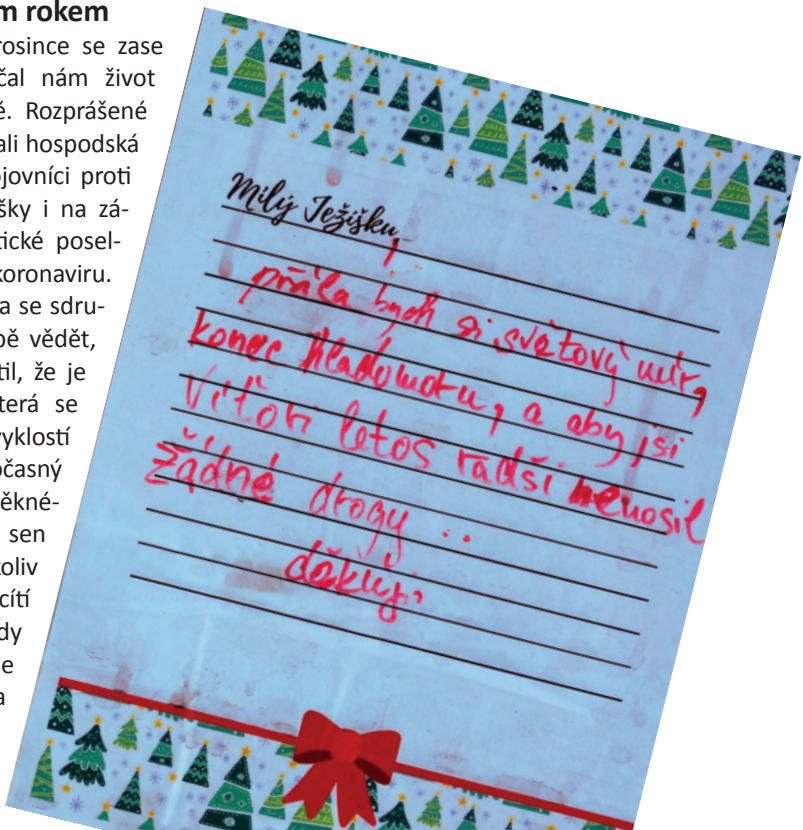 m rokem
rosince se zase
čal nám život
ě. Rozprášené
ali hospodská
ojovníci proti
šky i na zá-
tické posel-
koronaviru.
a se sdru-
bě vědět,
til, že je
terá se
vyklostí
očasný
ěkné-
sen
koliv
cítí
dy
e
a
Milý Ježíšku,
přála bych si světový mír,
konec hladomoru, a aby jsi
Víťovi letos radši nenosil
žádné drogy..
děkuji